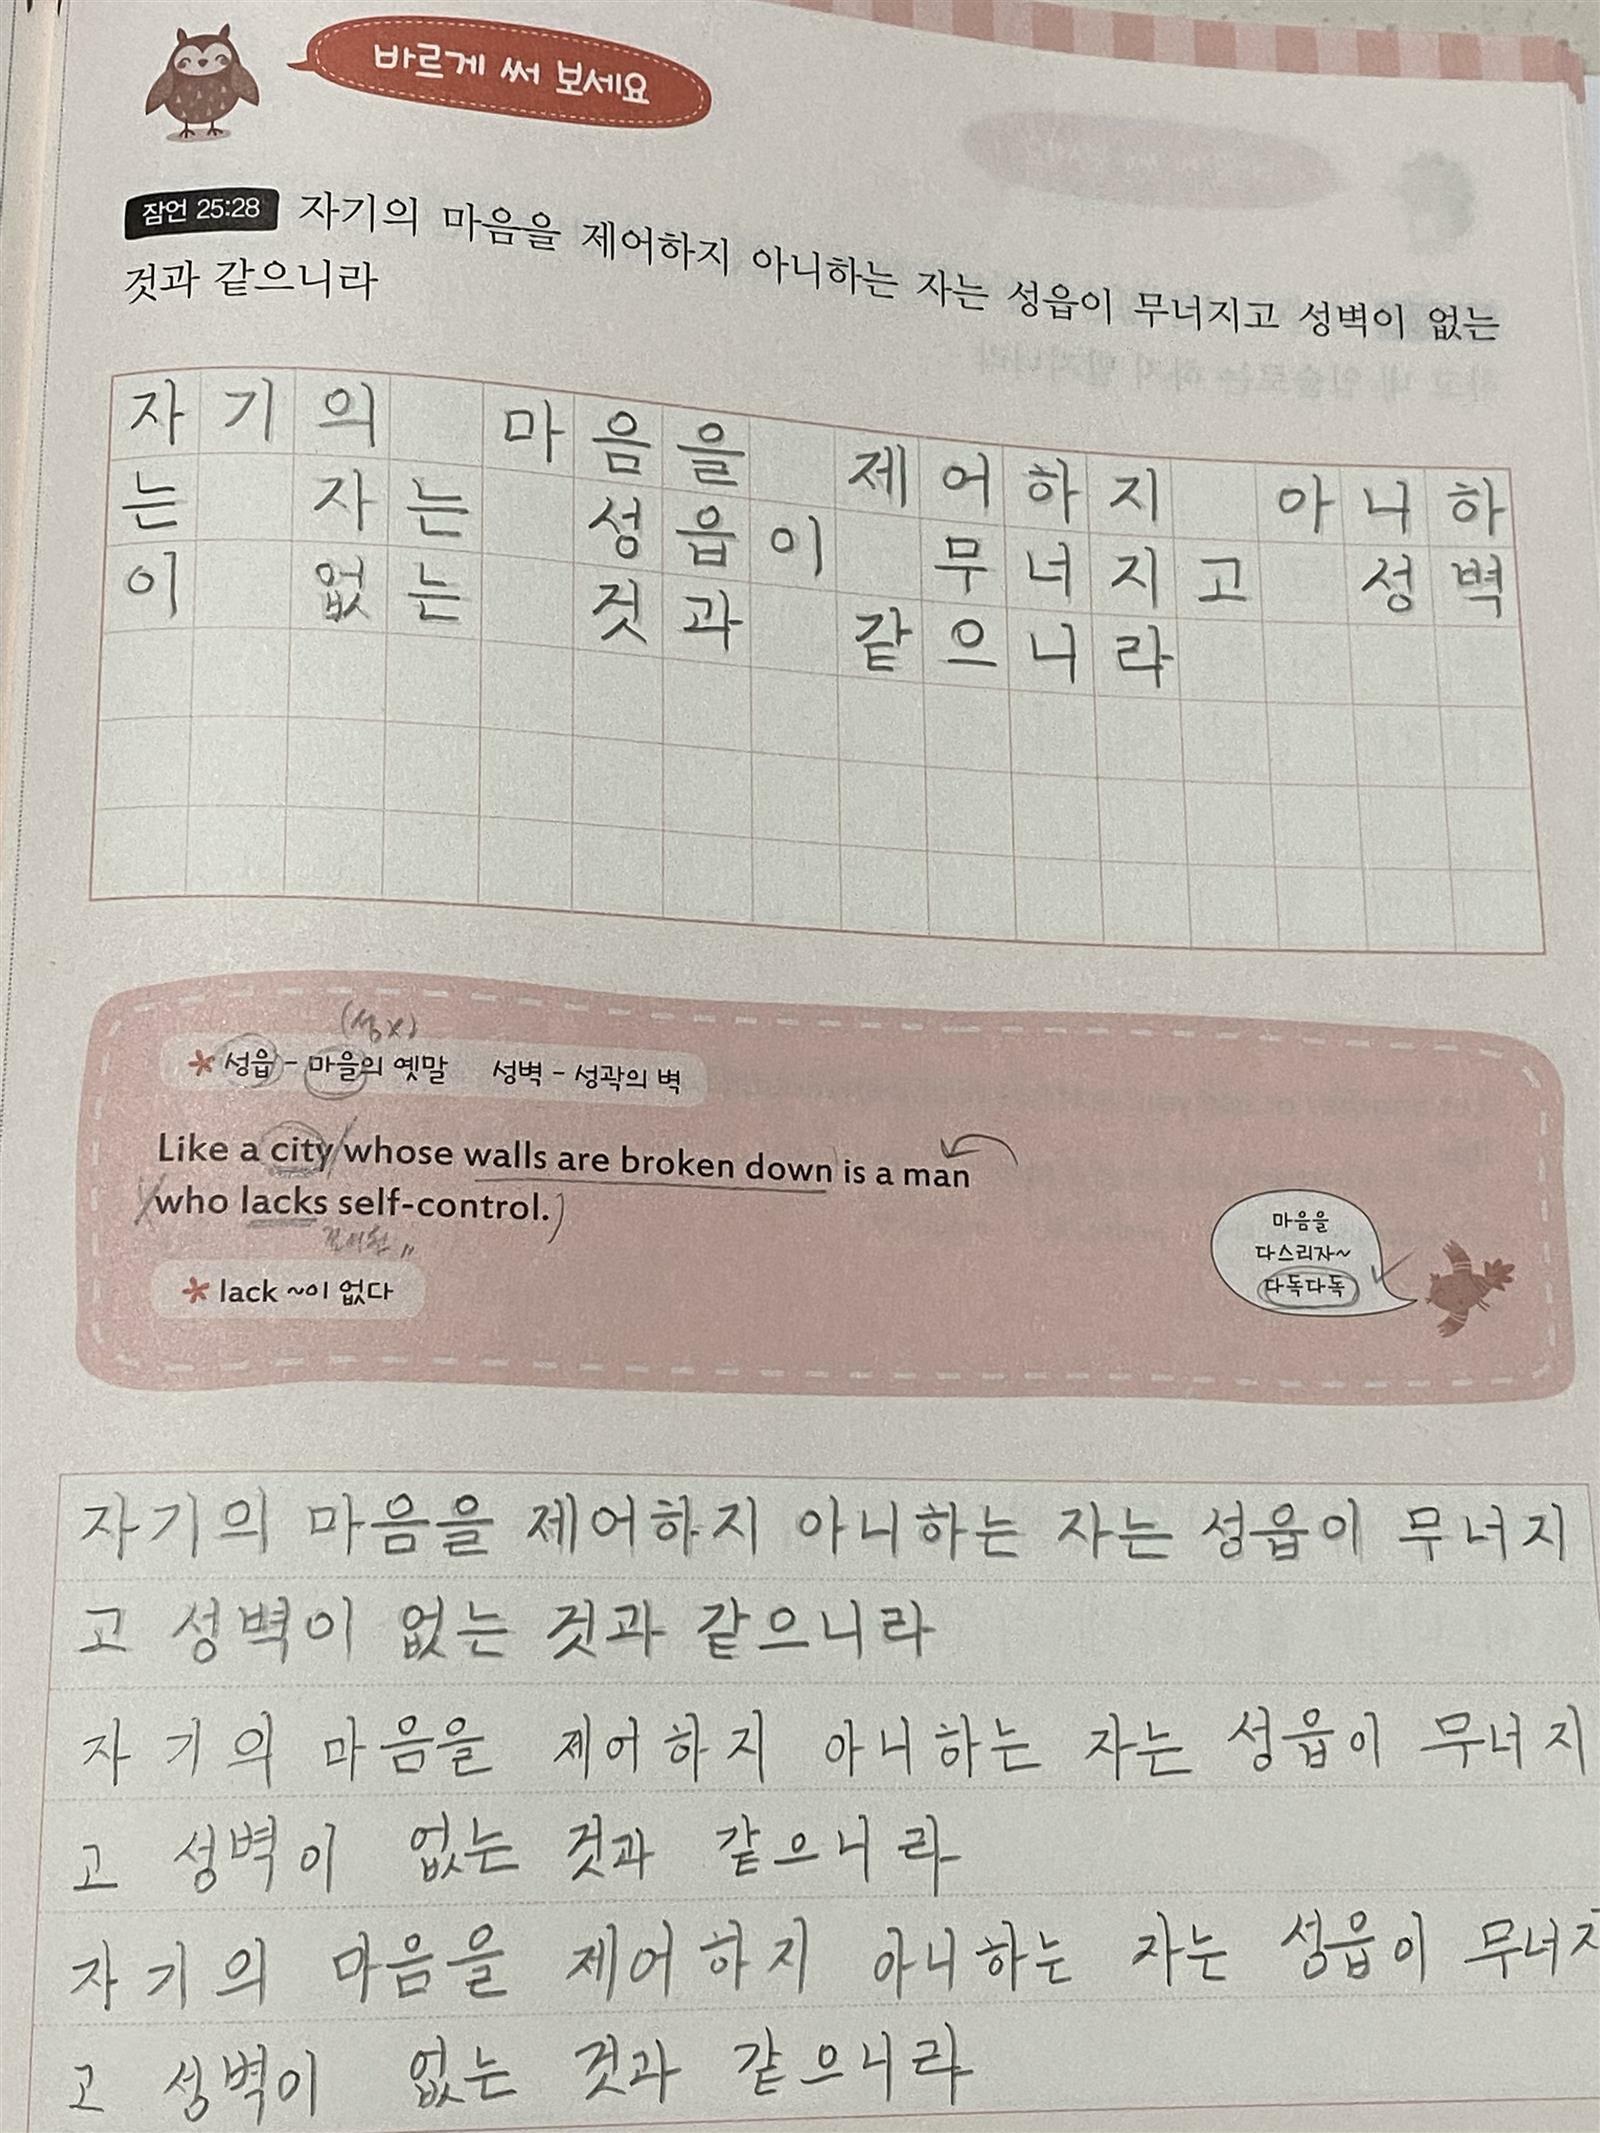 바르게 써 보세요
잠언 25:28 자기의 마음을 제어하지 아니하는 자는 성읍이 무너지고 성벽이 없는
것과 같으니라
자기의 마음을 제어하지 아니하
는 자는 성읍이 무너지고 성벽
이 없는 것과 같으니라
(성x)
* 성읍 - 마을의 옛말 성벽 - 성곽의 벽
Like a city whose walls are broken down is a man
who lacks self-control.
* lack ~이 없다
마음을
다스리자~
다독다독
자기의 마음을 제어하지 아니하는 자는 성읍이 무너지
고 성벽이 없는 것과 같으니라
자기의 마음을 제어하지 아니하는 자는 성읍이 무너지
고 성벽이 없는 것과 같으니라
자기의 마음을 제어하지 아니하는 자는 성읍이 무너지
고 성벽이 없는 것과 같으니라